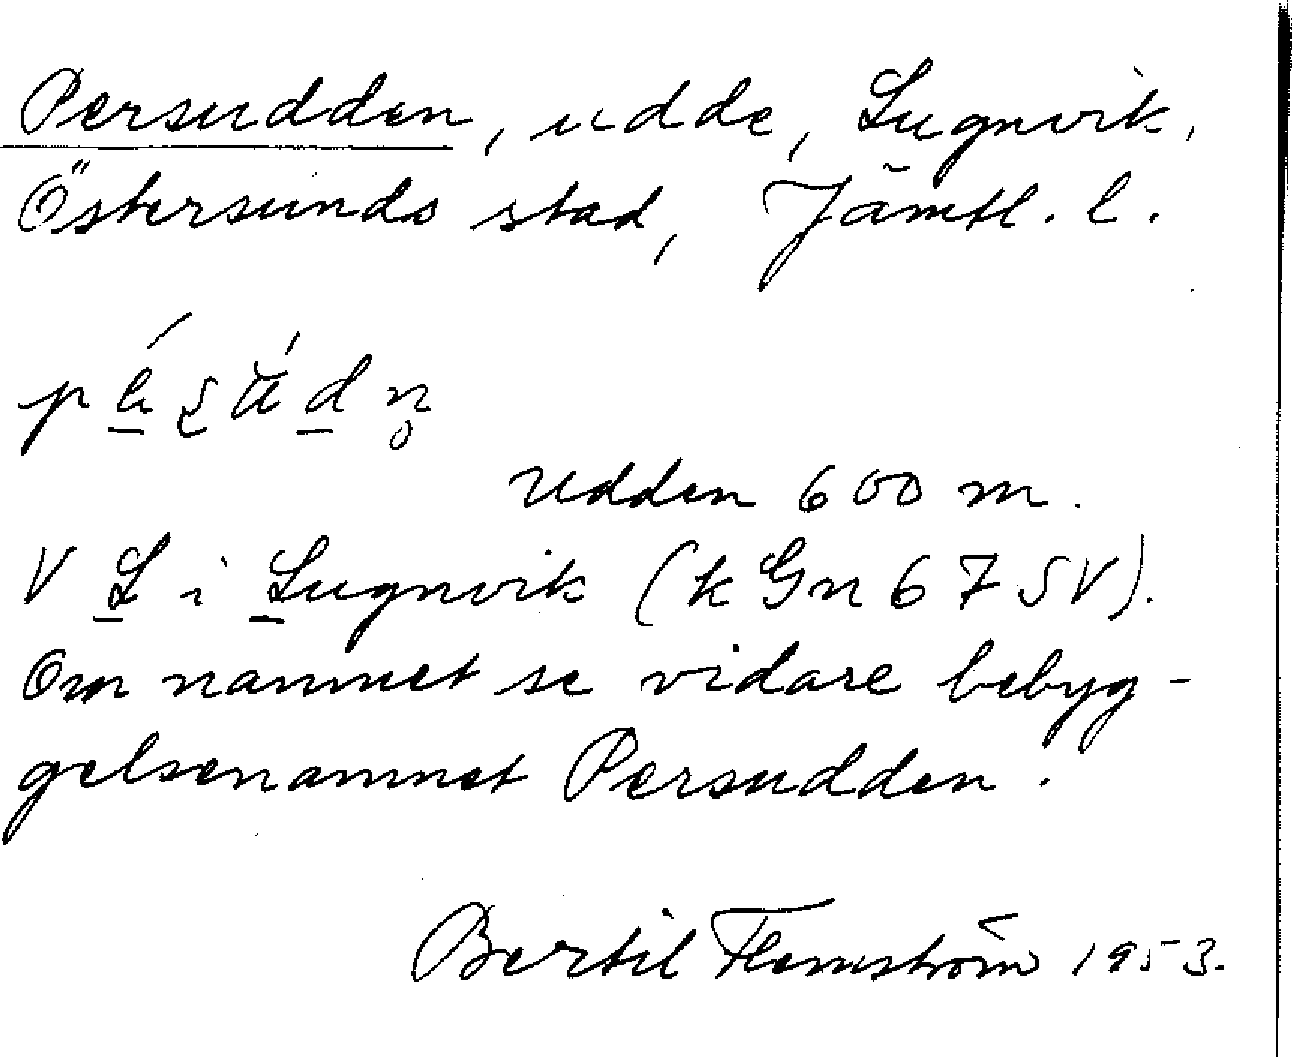 Persudden, udde, Lugnvik,
Östersunds stad, Jämtl. l.
Udden 600 m.
V L i Lugnvik (k Gn 67 SV).
Om namnet se vidare bebyg-
gelsenamnet Persudden.
Bertil Flemström 1953.